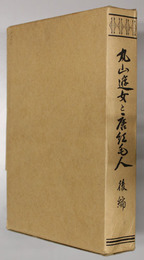 丸山遊女と唐紅毛人 後編